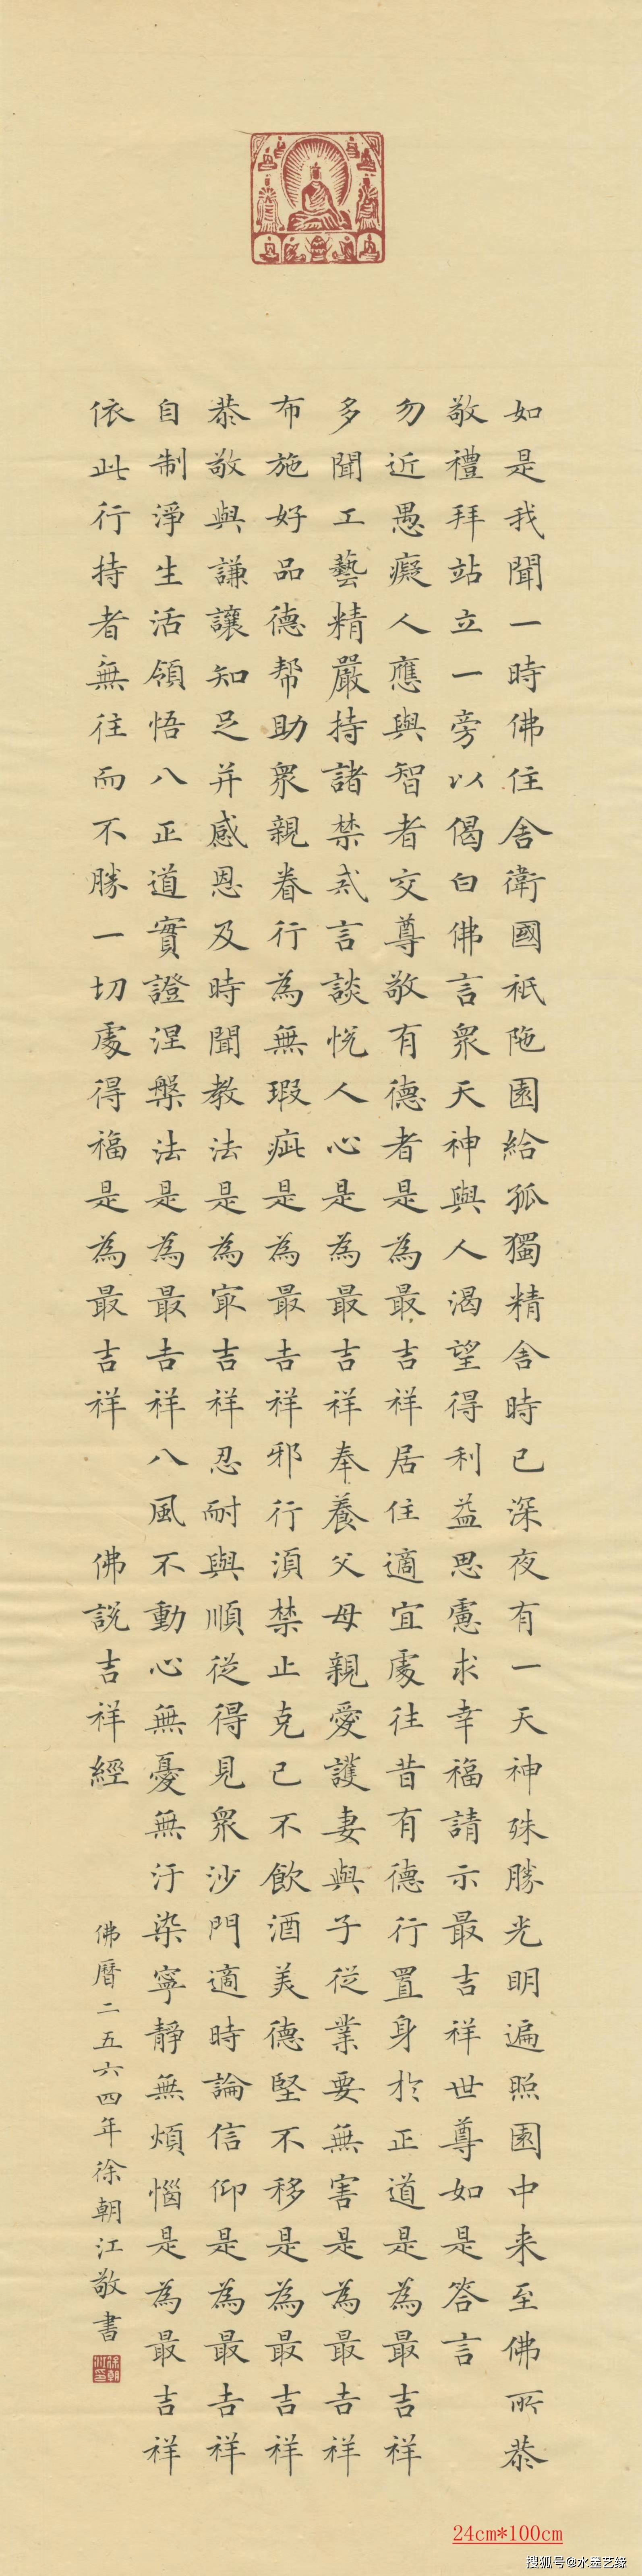 如是我聞一時佛住舍衛國祇陁園給孤獨精舍時已深夜有一天神殊勝光明遍照園中来至佛所恭
敬禮拜站立一旁以偈白佛言衆天神與人渴望得利益思慮求幸福請示最吉祥世尊如是答言
勿近愚癡人應與智者交尊敬有德者是為最吉祥居住適宜處往昔有德行置身於正道是為最吉祥
多聞工藝精嚴持諸禁戒言談悅人心是為最吉祥奉養父母親愛護妻與子從業要無害是為最吉祥
布施好品德帮助衆親眷行為無瑕疵是為最吉祥邪行須禁止克己不飲酒美德堅不移是為最吉祥
恭敬與謙讓知足并感恩及時聞教法是為冣吉祥忍耐與順從得見衆沙門適時論信仰是為最吉祥
自制淨生活領悟八正道實證涅槃法是為最吉祥八風不動心無憂無汙染寧靜無煩惱是為最吉祥
依此行持者無往而不勝一切處得福是為最吉祥 佛説吉祥經
佛曆二五六四年徐朝江敬書
徐朝江印
24cm*100cm
搜狐号@水墨艺缘